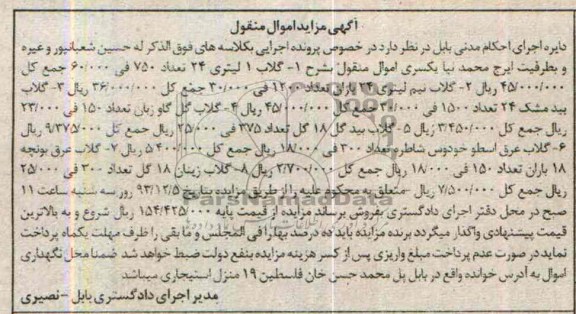 آگهی مزایده اموال منقول
دایره اجرای احکام مدنی بابل در نظر دارد در خصوص پرونده اجرایی بکلاسه های فوق الذکر له حسین شعبانپور و غیره
و بطرفیت ایرج محمد نیا یکسری اموال منقول بشرح ۱- گلاب ۱ لیتری ۲۴ تعداد ۷۵۰ فی ۶۰/۰۰۰ جمع کل
۴۵/۰۰۰/۰۰۰ ریال ۲- گلاب نیم لیتری ۲۴ باران تعداد ۱۲۰۰ فی ۳۰/۰۰۰ جمع کل ۳۶/۰۰۰/۰۰۰ ریال ۳- گلاب
بید مشک ۲۴ تعداد ۱۵۰۰ فی جمع کل ۴۵/۰۰۰/۰۰۰ ریال ۴- گلاب گل گاو زبان تعداد ۱۵۰ فی ۲۳/۰۰۰
ریال جمع کل ۳/۴۵۰/۰۰۰ ریال ۵- گلاب بید گل ۱۸ گل تعداد ۳۷۵ فی ۲۵/۰۰۰ ریال جمع کل ۹/۳۷۵/۰۰۰ ریال
۶- گلاب عرق اسطو خودوس شاطره تعداد ۳۰۰ فی ۱۸/۰۰۰ ریال جمع کل ۵/۴۰۰/۰۰۰ ریال ۷- گلاب عرق یونجه
۱۸ باران تعداد ۱۵۰ فی ۱۸۰۰۰ ریال جمع کل ۲/۷۰۰/۰۰۰ ریال ۸- گلاب زینان ۱۸ گل تعداد ۳۰۰ فی ۲۵/۰۰۰
ریال جمع کل ۷/۵۰۰/۰۰۰ ریال -متعلق به محکوم علیه را از طریق مزایده بتاریخ ۹۳/۱۲/۵ روز سه شنبه ساعت ۱۱
صبح در محل دفتر اجرای دادگستری بفروش برساند مزایده از قیمت پایه ۱۵۴/۴۲۵/۰۰۰ ریال شروع و به بالاترین
قیمت پیشنهادی واگذار میگردد برنده مزایده باید ده درصد بها را فی المجلس و مابقی را ظرف مهلت یکماه پرداخت
نماید در صورت عدم پرداخت مبلغ واریزی پس از کسر هزینه مزایده بنفع دولت ضبط خواهد شد ضمنا محل نگهداری
اموال به آدرس خوانده واقع در بابل پل محمد حسن خان فلسطین ۱۹ منزل استیجاری میباشد
مدیر اجرای دادگستری بابل - نصیری
ParsNamadData